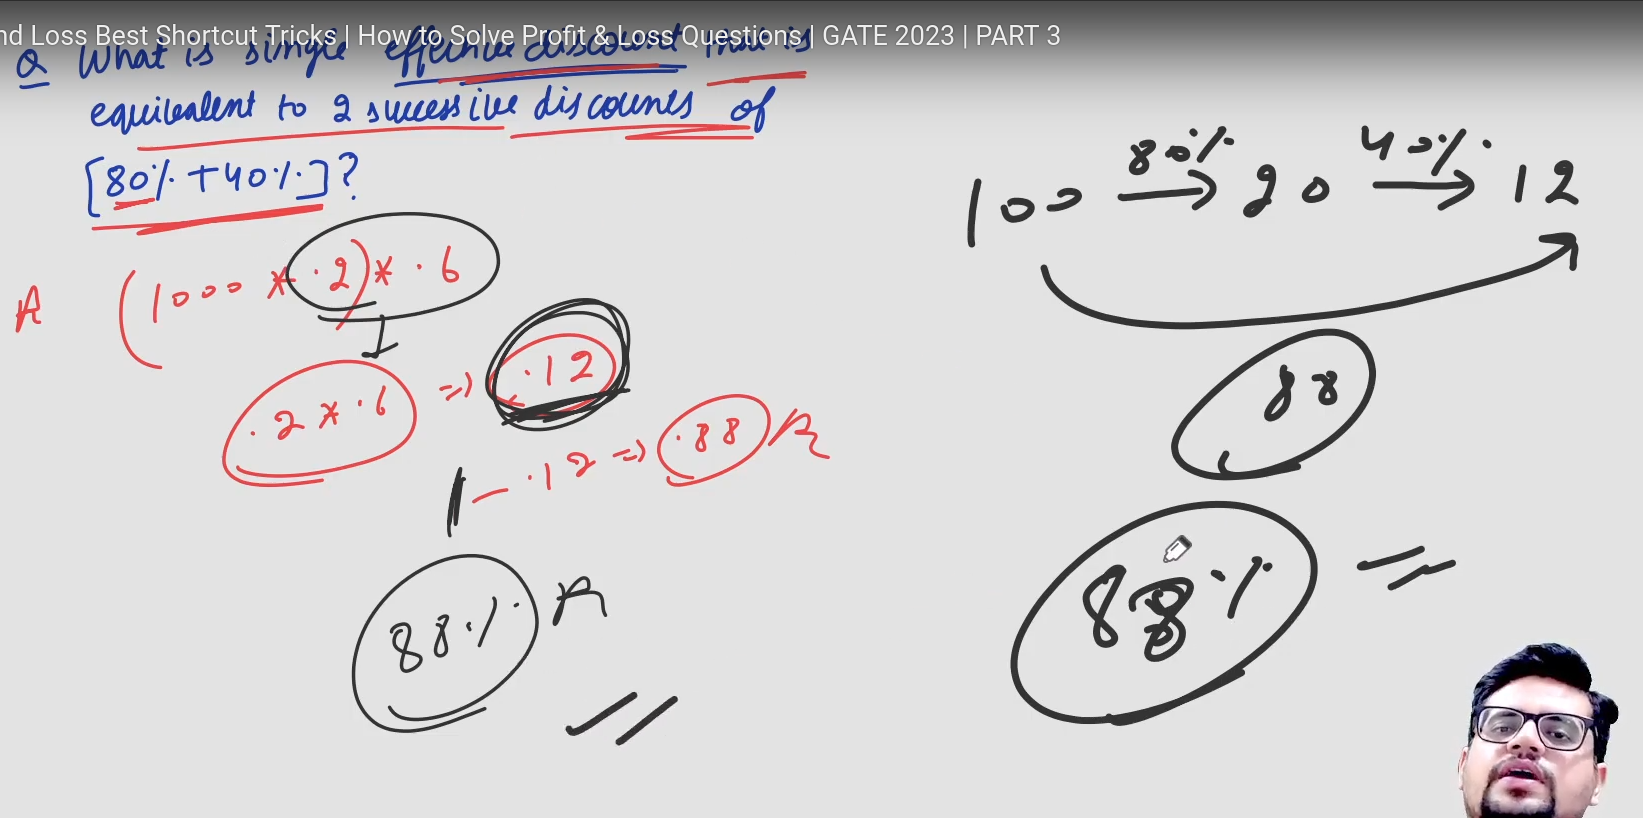 nd Loss Best Shortcut Tricks | How to Solve Profit & Loss Questions | GATE 2023 | PART 3
Q What is single effective discount that is
equivalent to 2 successive discounts of
[80% + 40%]?
A (1000 * .2) * .6
.2 * .6 => .12
1 - .12 => .88 A
88% A
100 80% → 20 40% → 12
88
88%